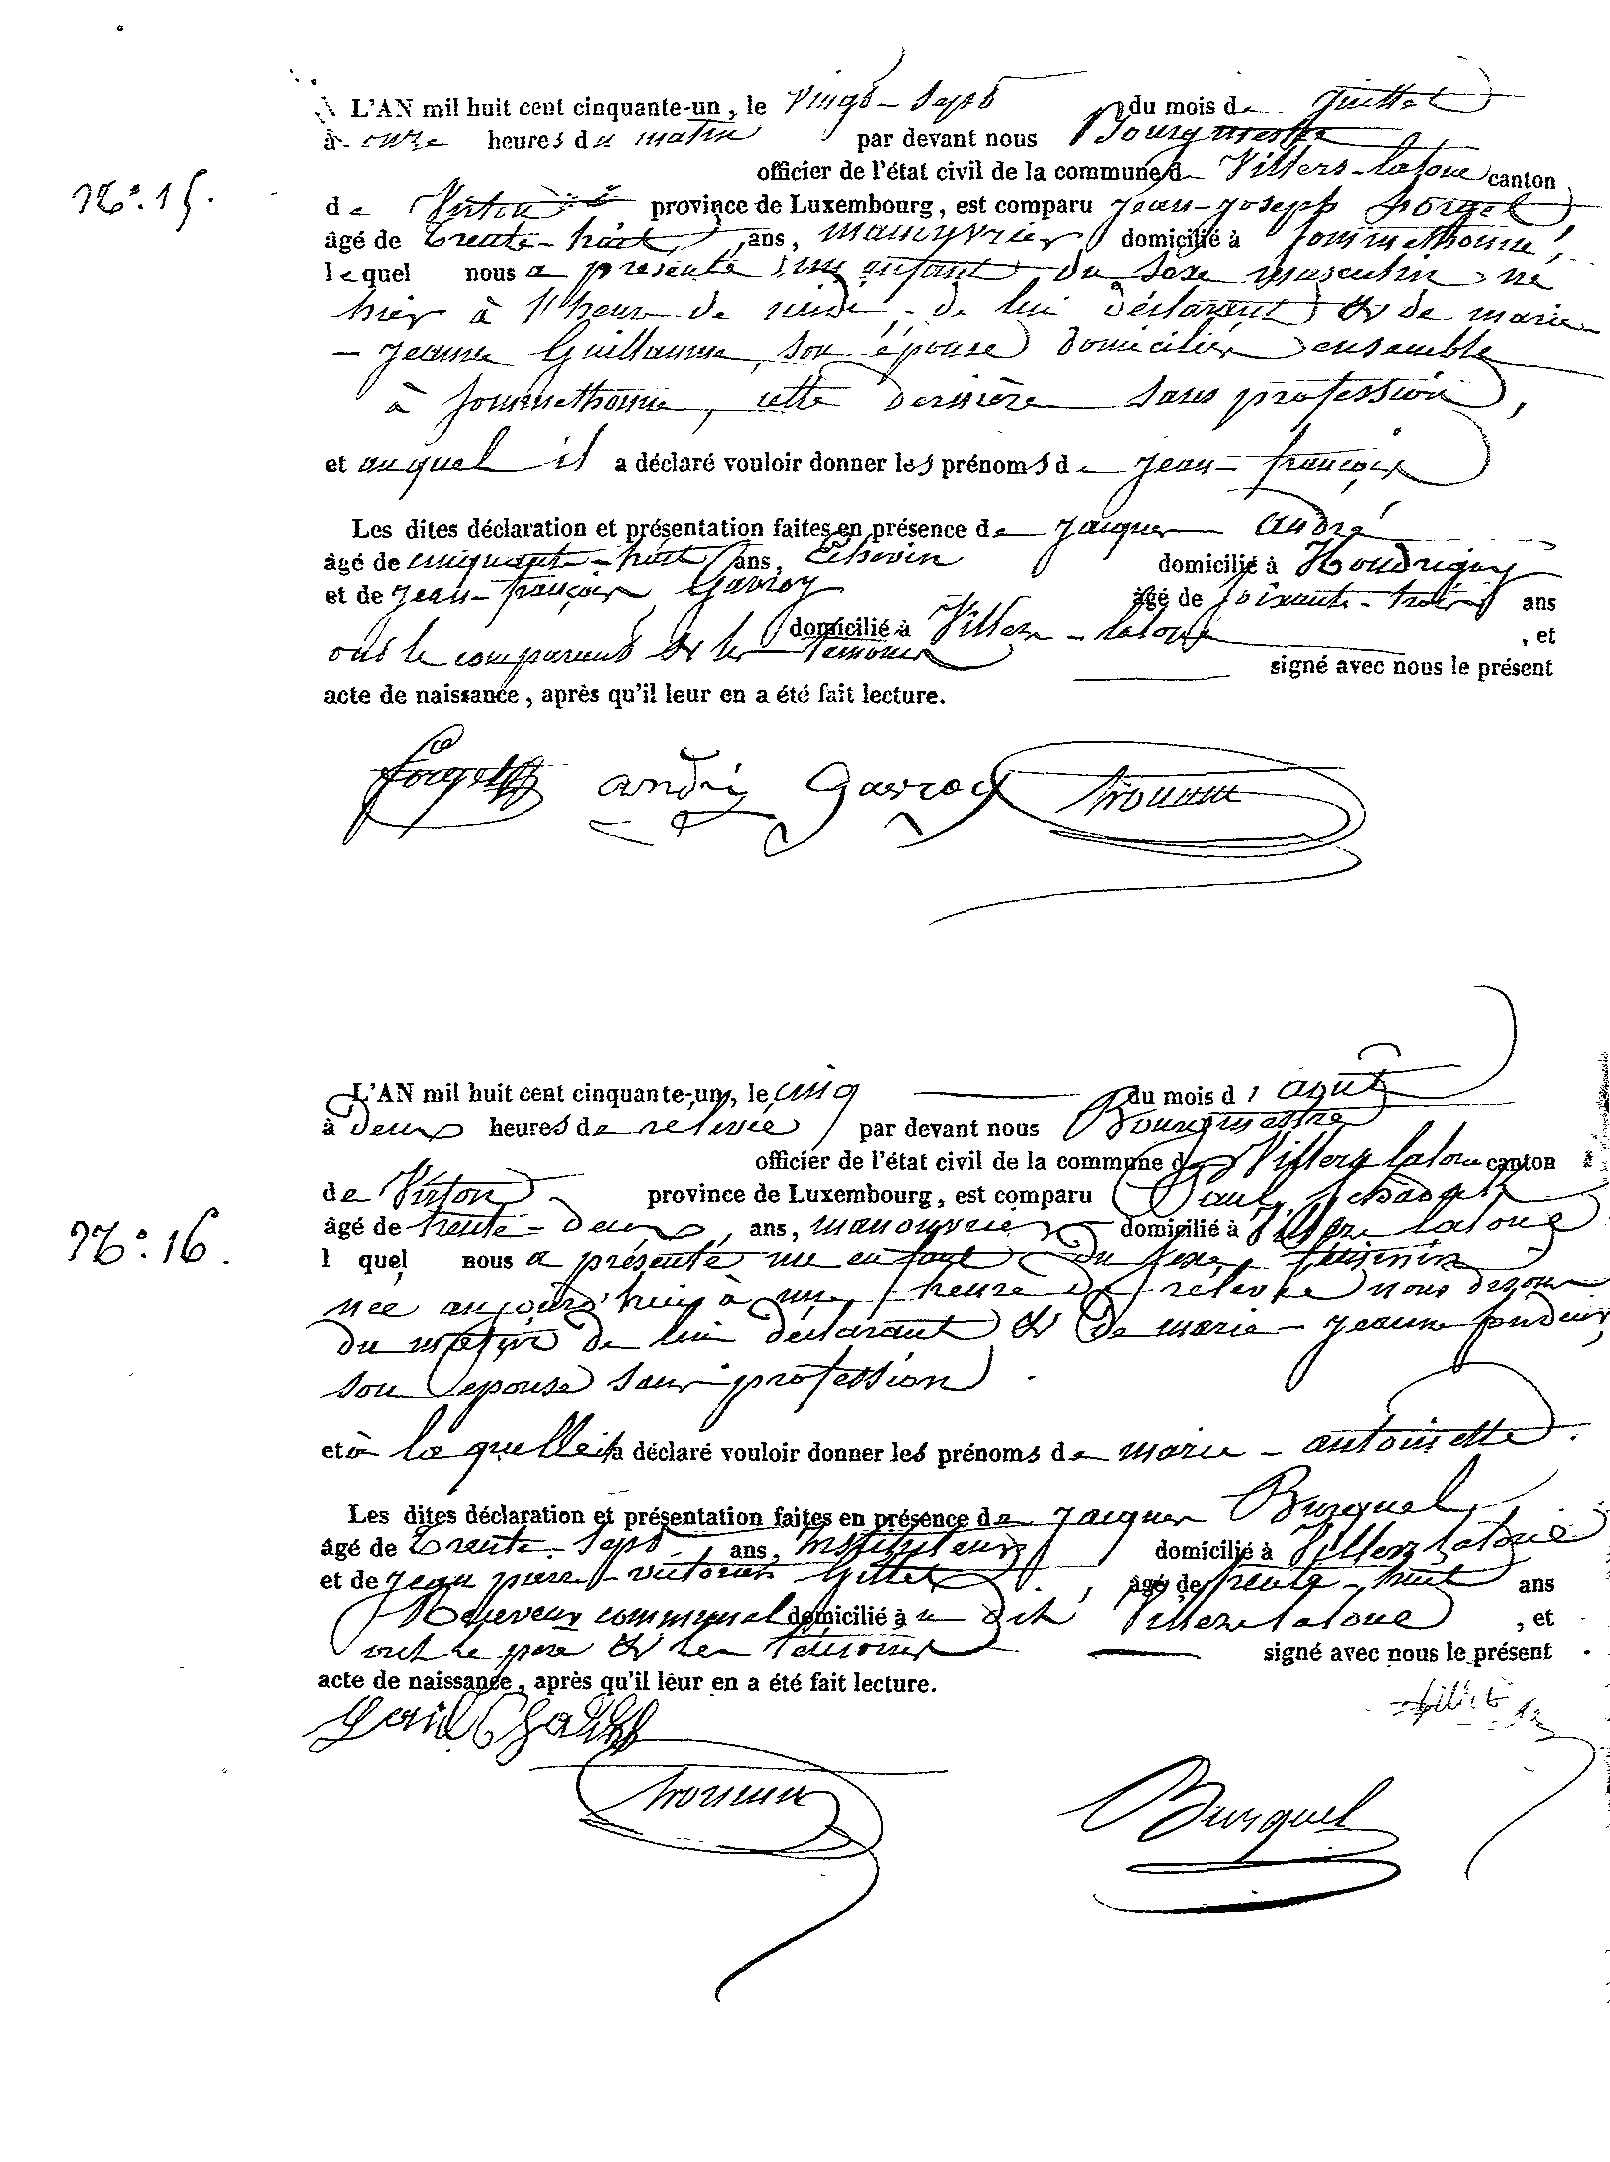 L'AN mil huit cent cinquante-un, le vingt-sept du mois de Juillet
à onze heures du matin par devant nous Bourgmestre
officier de l'état civil de la commune de Villers-latoue canton
de Virton province de Luxembourg, est comparu Jean-Joseph forget
âgé de trente-huit ans, manouvrier domicilié à Sommethonne,
N°. 15.
lequel nous a présenté un enfant du sexe masculin né
hier à l'heure de midi, de lui déclarant & de marie
- jeanne Guillaume, son épouse domiciliés ensemble
à Sommethonne, cette dernière sans profession,
et auquel il a déclaré vouloir donner les prénoms de Jean-françois
Les dites déclaration et présentation faites en présence de Jacques André
âgé de cinquante-huit ans, Echevin domicilié à Houdrigny
et de Jean-françois Gavroy âgé de soixante-trois ans
domicilié à Villers-latoue, et
ont le comparant & les témoins signé avec nous le présent
acte de naissance, après qu'il leur en a été fait lecture.
forget andré Gavroy
L'AN mil huit cent cinquante-un, le cinq du mois d'août
à deux heures de relevée par devant nous Bourgmestre
officier de l'état civil de la commune de Villers latoue canton
de Virton province de Luxembourg, est comparu Paul
âgé de trente-deux ans, manouvrier domicilié à Villers latoue
N°. 16.
l quel nous a présenté une enfant du sexe féminin
née aujourd'hui à une heure de relevée nous
du de lui déclarant & de marie-jeanne
son épouse sans profession.
et à laquelle il a déclaré vouloir donner les prénoms de marie-antoinette.
Les dites déclaration et présentation faites en présence de Jacques Burquel
âgé de trente-sept ans, Instituteur domicilié à Villers latoue
et de Jean pierre-victorien Gillet, âgé de trente-huit ans
Receveur communal domicilié à u dit Villers latoue, et
ont le père & les témoins signé avec nous le présent
acte de naissance, après qu'il leur en a été fait lecture.
Burquel